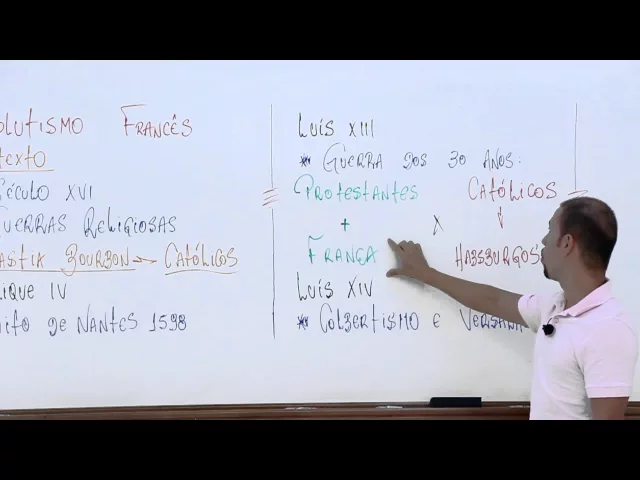 OLUTISMO FRANCÊS
TEXTO
SÉCULO XVI
GUERRAS RELIGIOSAS
ASTIA BOURBON → CATÓLICOS
IQUE IV
DE NANTES 1598
LUÍS XIII
* GUERRA DOS 30 ANOS:
PROTESTANTES CATÓLICOS
+ X ↓
FRANÇA HABSBURGOS
LUÍS XIV
* COLBERTISMO E VERSA